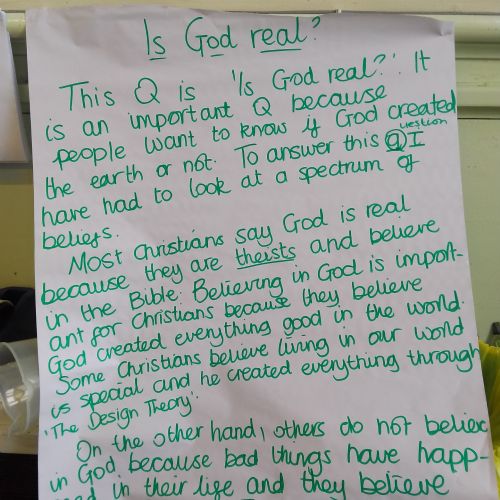 Is God real?
This Q is 'Is God real?'. It
is an important Q because
people want to know if God created
the earth or not. To answer this Question I
have had to look at a spectrum of
beliefs.
Most Christians say God is real
because they are theists and believe
in the Bible. Believing in God is import-
ant for Christians because they believe
God created everything good in the world.
Some Christians believe living in our world
is special and he created everything through
'The Design Theory'.
On the other hand, others do not believe
in God because bad things have happ-
in their life and they believe